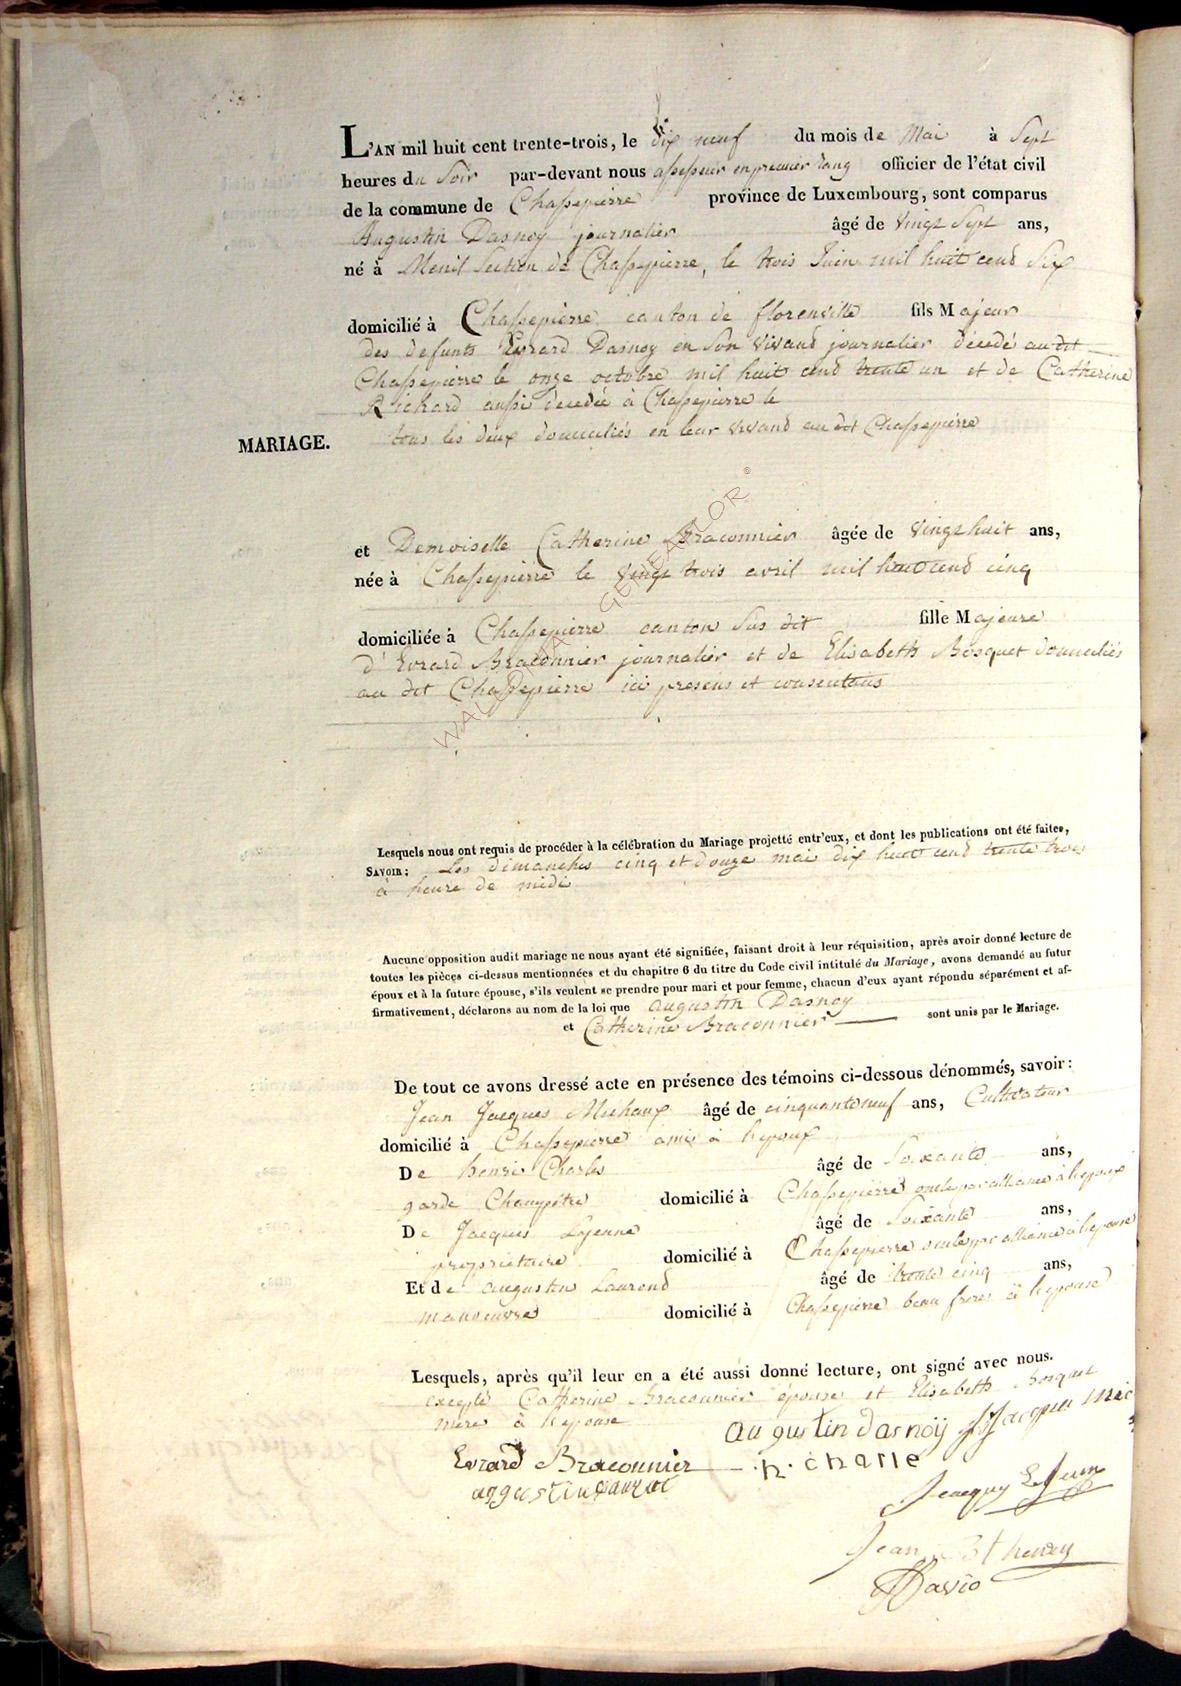 L'AN mil huit cent trente-trois, le dix neuf du mois de Mai à Sept
heures du Soir par-devant nous assesseur en premier rang officier de l'état civil
de la commune de Chassepierre province de Luxembourg, sont comparus
Augustin Dasnoy journalier âgé de vingt Sept ans,
né à Menil Section de Chassepierre, le trois Juin mil huit cend Six
domicilié à Chassepierre canton de florenville fils Majeur
des defunts Evrard Dasnoy en Son vivand journalier décedé au dit
Chassepierre le onze octobre mil huit cend trente un et de Catherine
Richard aussi decedée à Chassepierre le
tous les deux domiciliés en leur vivand au dit Chassepierre
MARIAGE.
et Demoiselle Catherine Braconnier âgée de vingt huit ans,
née à Chassepierre le vingt trois avril mil huit cend cinq
domiciliée à Chassepierre canton Sus dit fille Majeure
d'Evrard Braconnier journalier et de Elisabeth Bosquet domiciliés
au dit Chassepierre ici presens et consentans
WALLONIA GENEALOR ©
Lesquels nous ont requis de procéder à la célébration du Mariage projetté entr'eux, et dont les publications ont été faites,
SAVOIR: Les dimanches cinq et douze mai dix huit cend trente trois
à heure de midi
Aucune opposition audit mariage ne nous ayant été signifiée, faisant droit à leur réquisition, après avoir donné lecture de
toutes les pièces ci-dessus mentionnées et du chapitre 6 du titre du Code civil intitulé du Mariage, avons demandé au futur
époux et à la future épouse, s'ils veulent se prendre pour mari et pour femme, chacun d'eux ayant répondu séparément et af-
firmativement, déclarons au nom de la loi que augustin Dasnoy
et Catherine Braconnier sont unis par le Mariage.
De tout ce avons dressé acte en présence des témoins ci-dessous dénommés, savoir:
Jean Jacques Michaux âgé de cinquante neuf ans, Cultivateur
domicilié à Chassepierre amis à l'epoux
De henri Charles âgé de Soixante ans,
garde Champêtre domicilié à Chassepierre oncle par alliance à l'epoux
De Jacques Lejenne âgé de Soixante ans,
propriétaire domicilié à Chassepierre oncle par alliance à l'epouse
Et de augustin Laurend âgé de trente cinq ans,
manoeuvre domicilié à Chassepierre beau frere à l'epouse
Lesquels, après qu'il leur en a été aussi donné lecture, ont signé avec nous.
excepté Catherine Braconnier épouse et Elisabeth Bosquet
mere à l'epouse
augustin dasnoÿ JJacques mic
Evrard Braconnier h. charle
Jean henry